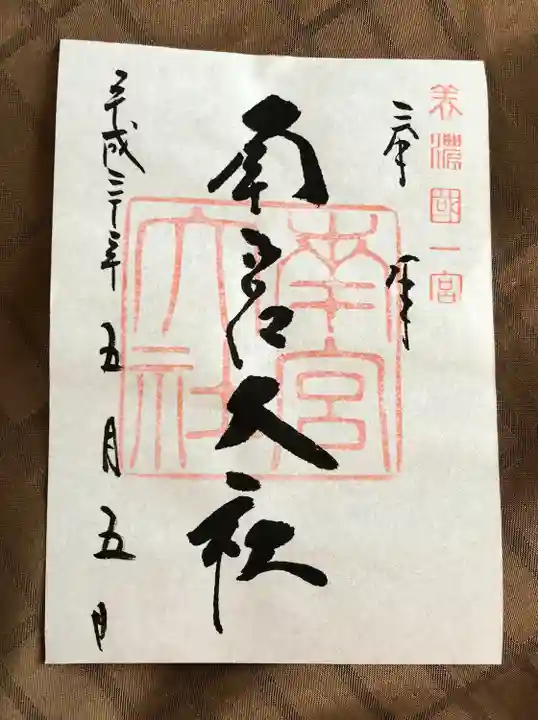 美濃國一宮
奉拝
南宮大社
南宮大社
平成三十年五月五日